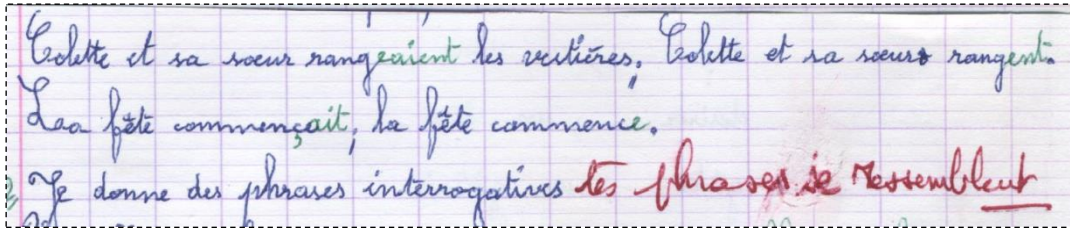 Colette et sa sœur rangeaient les vestières, Colette et sa sœurs rangent.
Laa fête commençait, la fête commence.
Je donne des phrases interrogatives tes phrases se ressemblent